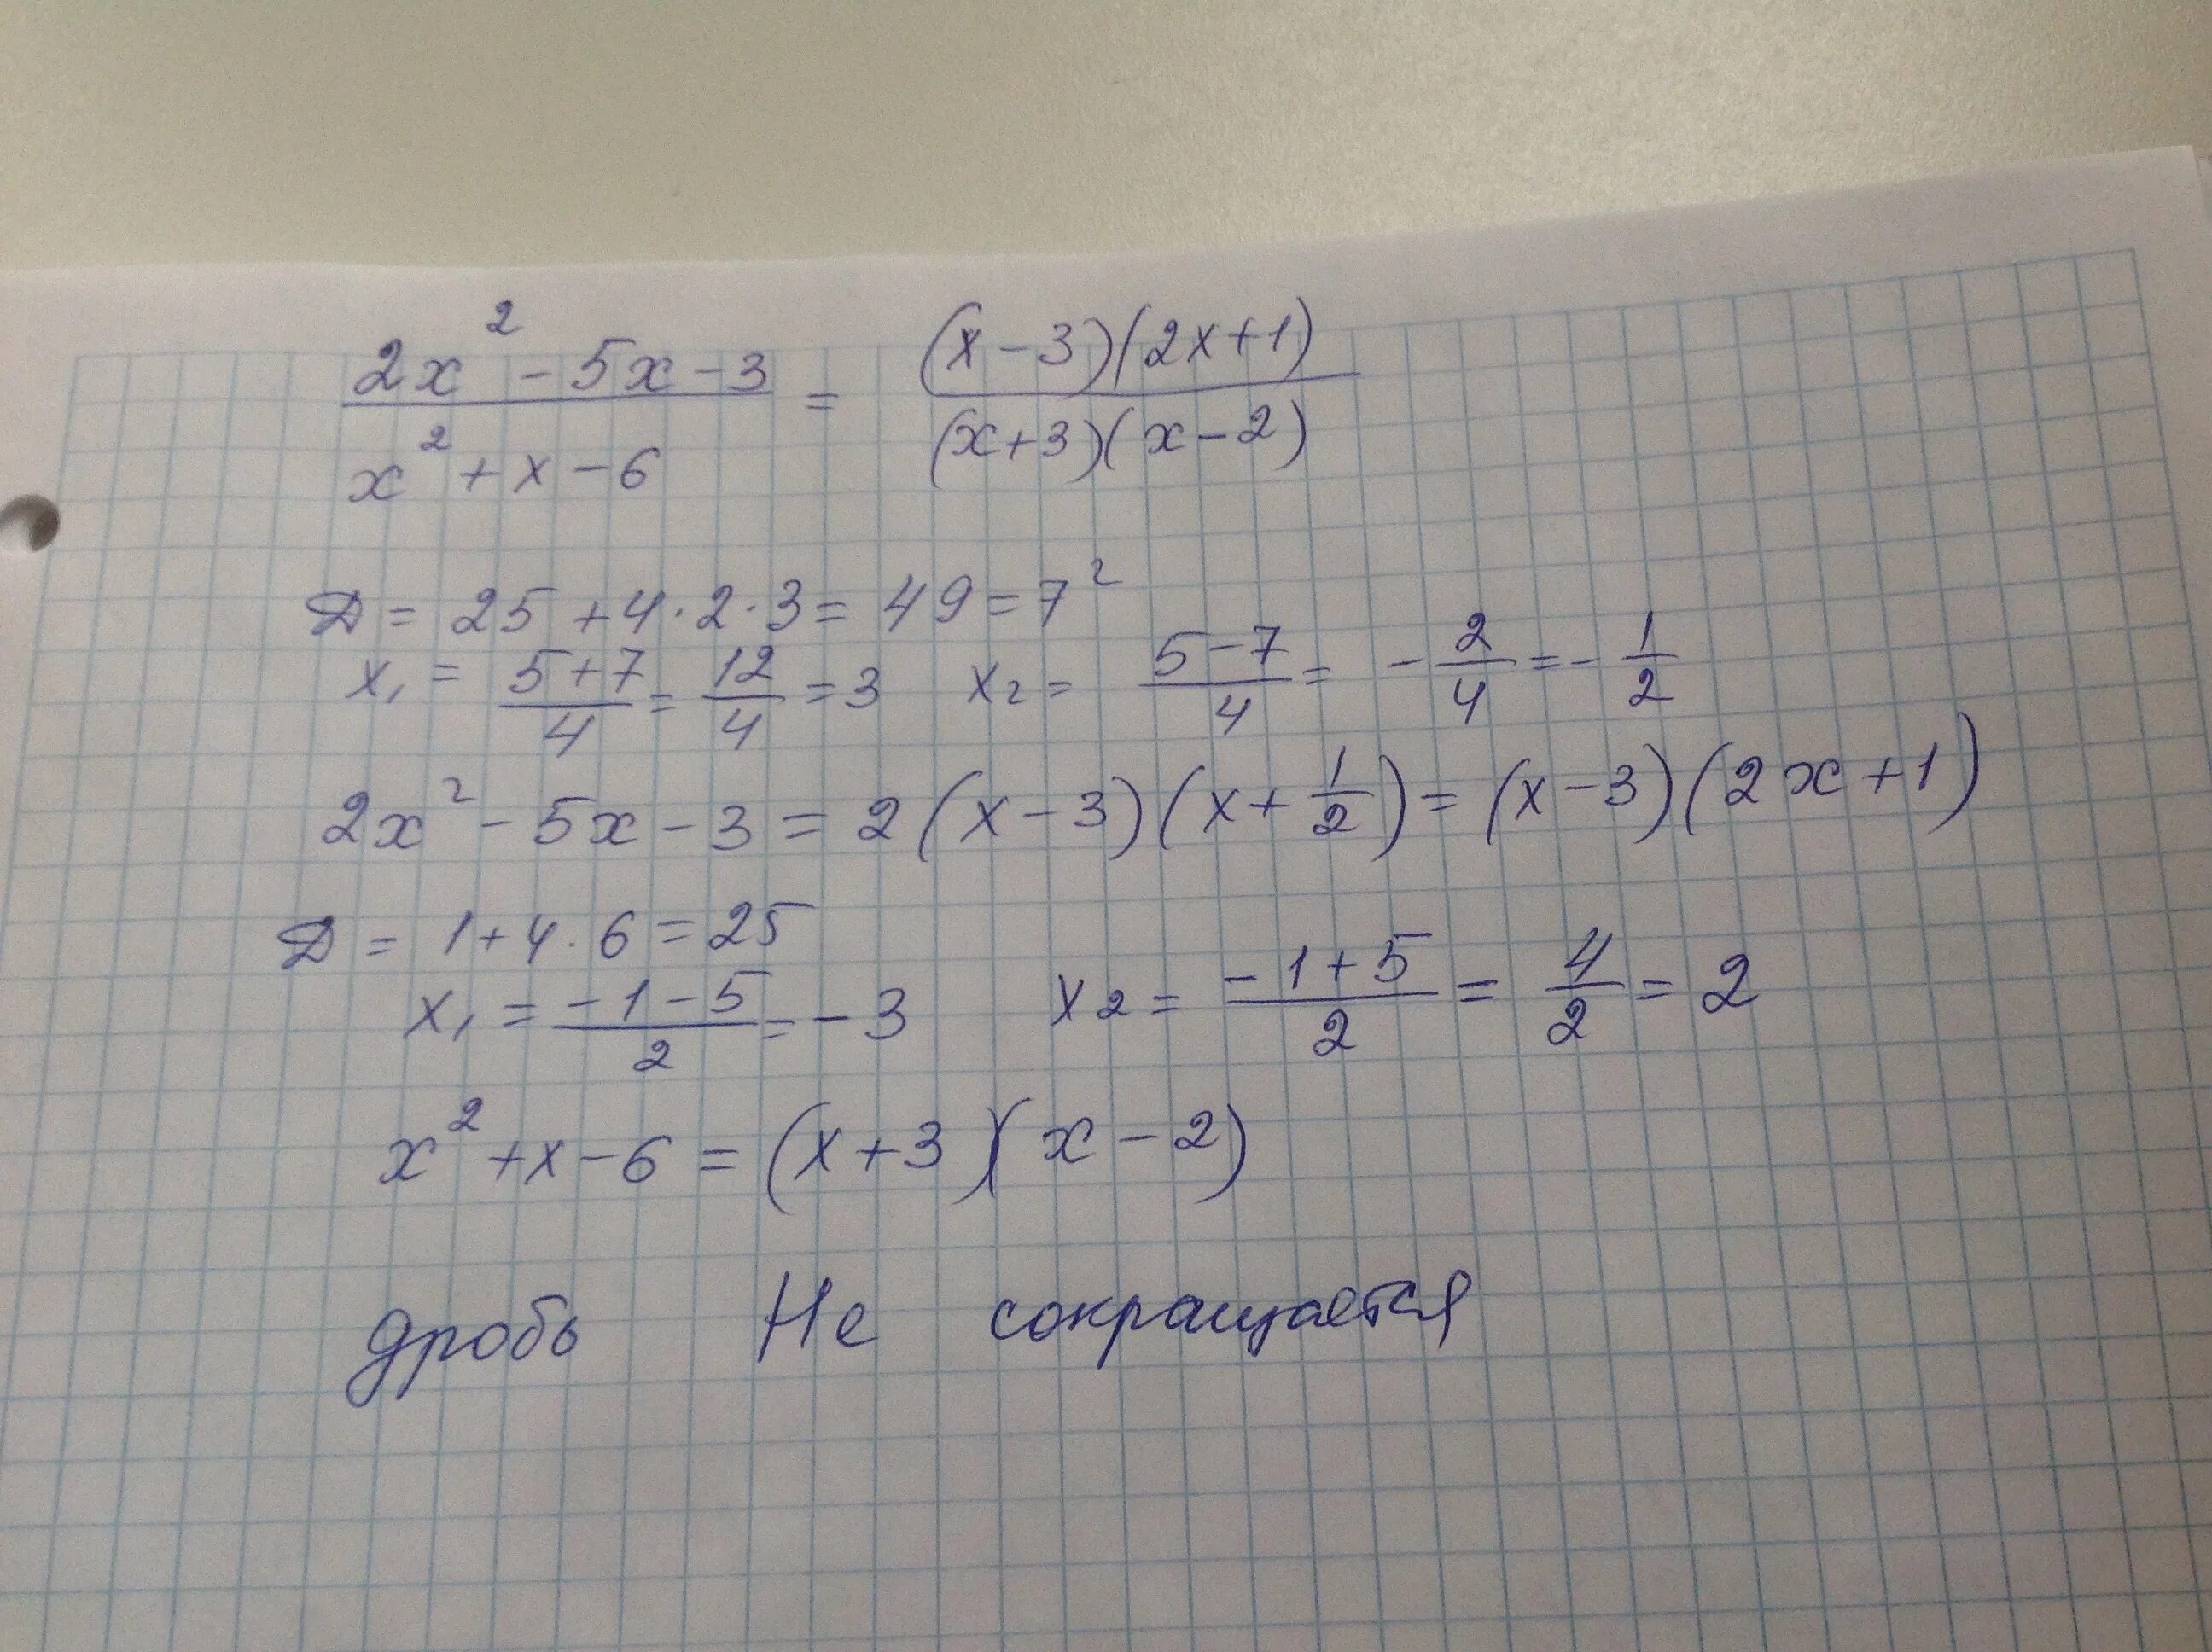 (2x² - 5x - 3)/(x² + x - 6) = ((x - 3)(2x + 1))/((x + 3)(x - 2))
D = 25 + 4 · 2 · 3 = 49 = 7²
x₁ = (5 + 7)/4 = 12/4 = 3 x₂ = (5 - 7)/4 = - 2/4 = - 1/2
2x² - 5x - 3 = 2(x - 3)(x + 1/2) = (x - 3)(2x + 1)
D = 1 + 4 · 6 = 25
x₁ = (-1 - 5)/2 = -3 x₂ = (-1 + 5)/2 = 4/2 = 2
x² + x - 6 = (x + 3)(x - 2)
дробь Не сокращается